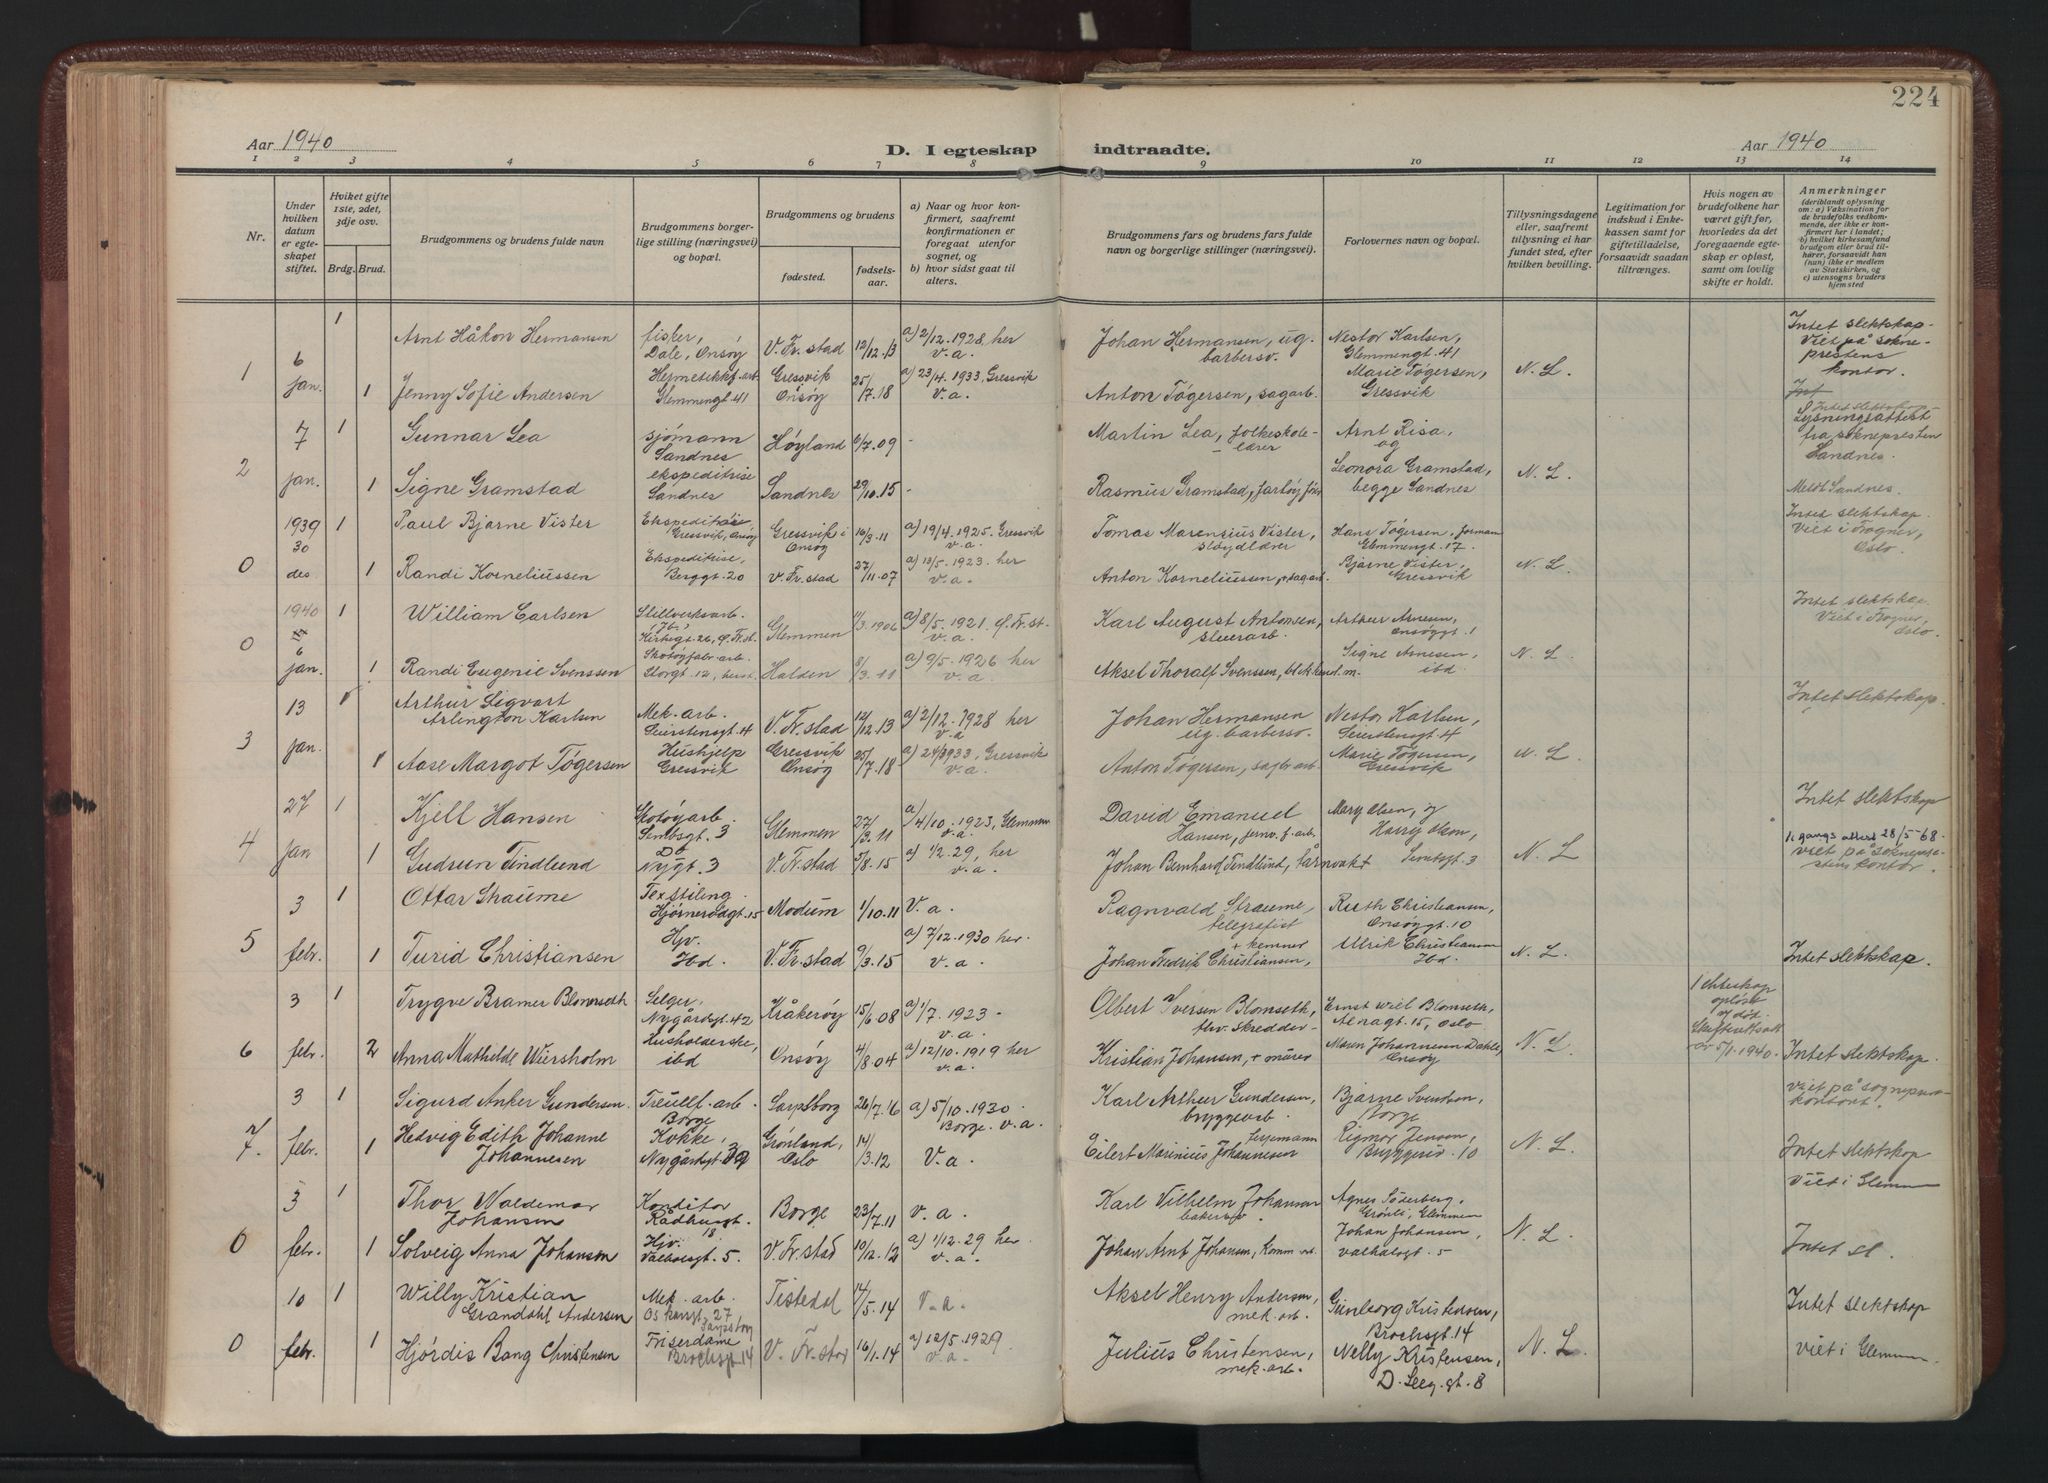 224
Aar 1940
D. I egteskap indtraadte.
Aar 1940
1 2 3 4 5 6 7 8 9 10 11 12 13 14
Nr.
Under hvilken datum er egteskapet stiftet.
Hviket gifte 1ste, 2det, 3dje osv.
Brdg. Brud.
Brudgommens og brudens fulde navn
Brudgommens borgerlige stilling (næringsvei) og bopæl.
Brudgommens og brudens
fødested.
fødselsaar.
a) Naar og hvor konfirmert, saafremt konfirmationen er foregaat utenfor sognet, og
b) hvor sidst gaat til alters.
Brudgommens fars og brudens fars fulde navn og borgerlige stillinger (næringsvei).
Forlovernes navn og bopæl.
Tillysningsdagene eller, saafremt tillysning ei har fundet sted, efter hvilken bevilling.
Legitimation for indskud i Enkekassen samt for giftetilladelse, forsaavidt saadan tiltrænges.
Hvis nogen av brudefolkene har været gift før, hvorledes da det foregaaende egteskap er opløst, samt om lovlig skifte er holdt.
Anmerkninger
(deriblandt oplysning om: a) Vaksination for de brudefolks vedkommende, der ikke er konfirmert her i landet; b) hvilket kirkesamfund brudgom eller brud tilhører, forsaavidt han (hun) ikke er medlem av Statskirken, og c) utensogns bruders hjemsted
1 6 jan. 1 Arnt Håkon Hermansen fisker, Dale, Onsøy V. Fr.stad 12/12.13 a) 2/12.1928, her v.a. Johan Hermansen, ug. barbersv. Nestor Karlsen, Glemmengt. 41 N. L. Intet slektskap. Viet på sokneprestens kontor.
1 Jenny Sofie Andersen Hermetikkf.arb Glemmengt 41 Gressvik Onsøy 25/7.18 a) 23/4.1933, Gressvik v.a. Anton Tøgersen, sagarb. Marie Tøgersen, Gressvik
2 7 jan. 1 Gunnar Lea sjømann Sandnes Høyland 6/7.09 - Martin Lea, folkeskolelærer Arnt Risa, og N. L. Intet slektskap Lysningsattest fra soknepresten Sandnes.
1 Signe Gramstad ekspeditrise Sandnes Sandnes 29/10.15 - Rasmus Gramstad, Leonora Gramstad, begge Sandnes Meldt Sandnes.
0 1939 30 des 1 Paul Bjarne Vister Gressvik, Onsøy Gressvik i Onsøy 16/3.11 a) 19/4.1925. Gressvik v.a. Tomas Marensius Vister, sløydlærer Hans Tøgersen, formann Glemmengt. 17. N. L. Intet slektskap. Viet i Frogner, Oslo.
1 Randi Korneliussen Ekspeditrise, Berggt. 20 V. Fr.stad 27/11.07 a) 13/5.1923 her v.a. Anton Korneliussen, + sagarb. Bjarne Vister, Gressvik
0 1940 6 jan. 1 William Carlsen Glemmen 11/3.1906 a) 8/5.1921. Ø. Fr.st. v.a. Karl August Antonsen, Arthur Arnesen, Onsøygt. 1 N. L. Intet slektskap Viet i Frogner, Oslo.
1 Randi Eugenie Svenssen Skotøyfabr.arb. Storgt. 12, Halden 8/3.11 a) 9/5.1926 her v.a. Aksel Thoralf Svenssen, Signe Arnesen, ibd.
3 13 jan. 1 Arthur Sigvart Arlington Karlsen Mek. arb. Seierstensgt. 4 V. Fr.stad 12/12.13 a) 2/12.1928 her v.a. Johan Hermansen ug. barbersv. Nestor Karlsen, Seierstensgt. 4 N. L. Intet slektskap.
1 Aase Margot Tøgersen Hushjelp Gressvik Gressvik Onsøy 25/7.18 Gressvik v.a. Anton Tøgersen, Marie Tøgersen, Gressvik
4 27 jan 1 Kjell Hansen Skotøyarb. 3 Glemmen 27/3.11 a) 4/10.1923, Glemmen v.a. David Emanuel Hansen, Mary Olsen, og Harry Olsen, N. L. Intet slektskap
1 Gudrun Tindlund Do Nygt. 3 V. Fr.stad 5/8.15 a) 1/2.29, her v.a. Johan Bernhard Tindlund, tårnvakt viet på kontor.
5 3 febr. 1 Ottar Straume Modum 1/10.11 V. a. Ragnvald Straume, telegrafist Ruth Christiansen, Onsøygt. 10 N. L. Intet slektskap.
1 Turid Christiansen Hjv. Ibd. V. Fr.stad 9/3.15 a) 7/12.1930 her. v.a. Johan Fredrik Christiansen, + kemner Ulrik Christiansen Ibd.
6 3 febr. 1 Trygve Bramer Blomseth Selger, Nygårdsgt. 42 Kråkerøy 15/6.08 a) 1/7.1923 - v.a. Olbert Iversen Blomseth, skredder Blomseth, Alnagt. 15, Oslo N. L. 1 ekteskap opløst v/død. 5/1.1940. Intet slektskap.
2 Anna Mathilde Wiersholm Husholderske, ibd Onsøy 4/8.04 a) 12/10.1919 her v.a. Kristian Johansen, + murer Maren Johannesen Dahle, Onsøy
7. 3 febr. 1 Sigurd Anker Gundersen. arb. Borge Sarpsborg 26/7.16 a) 5/10.1930. Borge. v.a. Karl Arthur Gundersen, bryggearb. Bjarne Svendsen, Borge N. L. viet på kontor.
1 Hedvig Edith Johanne Johannesen Kokke, Nygårdsgt. Grønland, Oslo 14/3.12 V. a. Eilert Marinius Johannesen Rigmor Jensen, 10 Intet slektskap
0 3 febr. 1 Thor Waldemar Johansen Konditor Rådhusgt. 18 Borge 23/7.11 v. a. Karl Vilhelm Johansen Agnes Søderberg, Grønli, Glemmen N. L. Viet i Glemm
1 Solveig Anna Johansen Hjv. 5. V. Fr.stad 10/12.12 a) 1/12.29 her v.a. Johan Arnt Johansen, Johan Johansen, 5 Intet sl.
0 10 febr. 1 Willy Kristian Grandahl Andersen Mek. arb. 27 Sarpsborg Tistedal 14/5.14 V. a. Aksel Henry Andersen, mek. arb. Gunborg Kristensen, Brochsgt. 14 N. L. Intet slektskap
1 Hjørdis Bang Christensen Friserdame Brochsgt. 14 V. Fr.stad 16/1.14 a) 12/5.1929 v.a. Julius Christensen, mek. arb. Nelly Kristensen, gt. 8 viet i Glemmen.